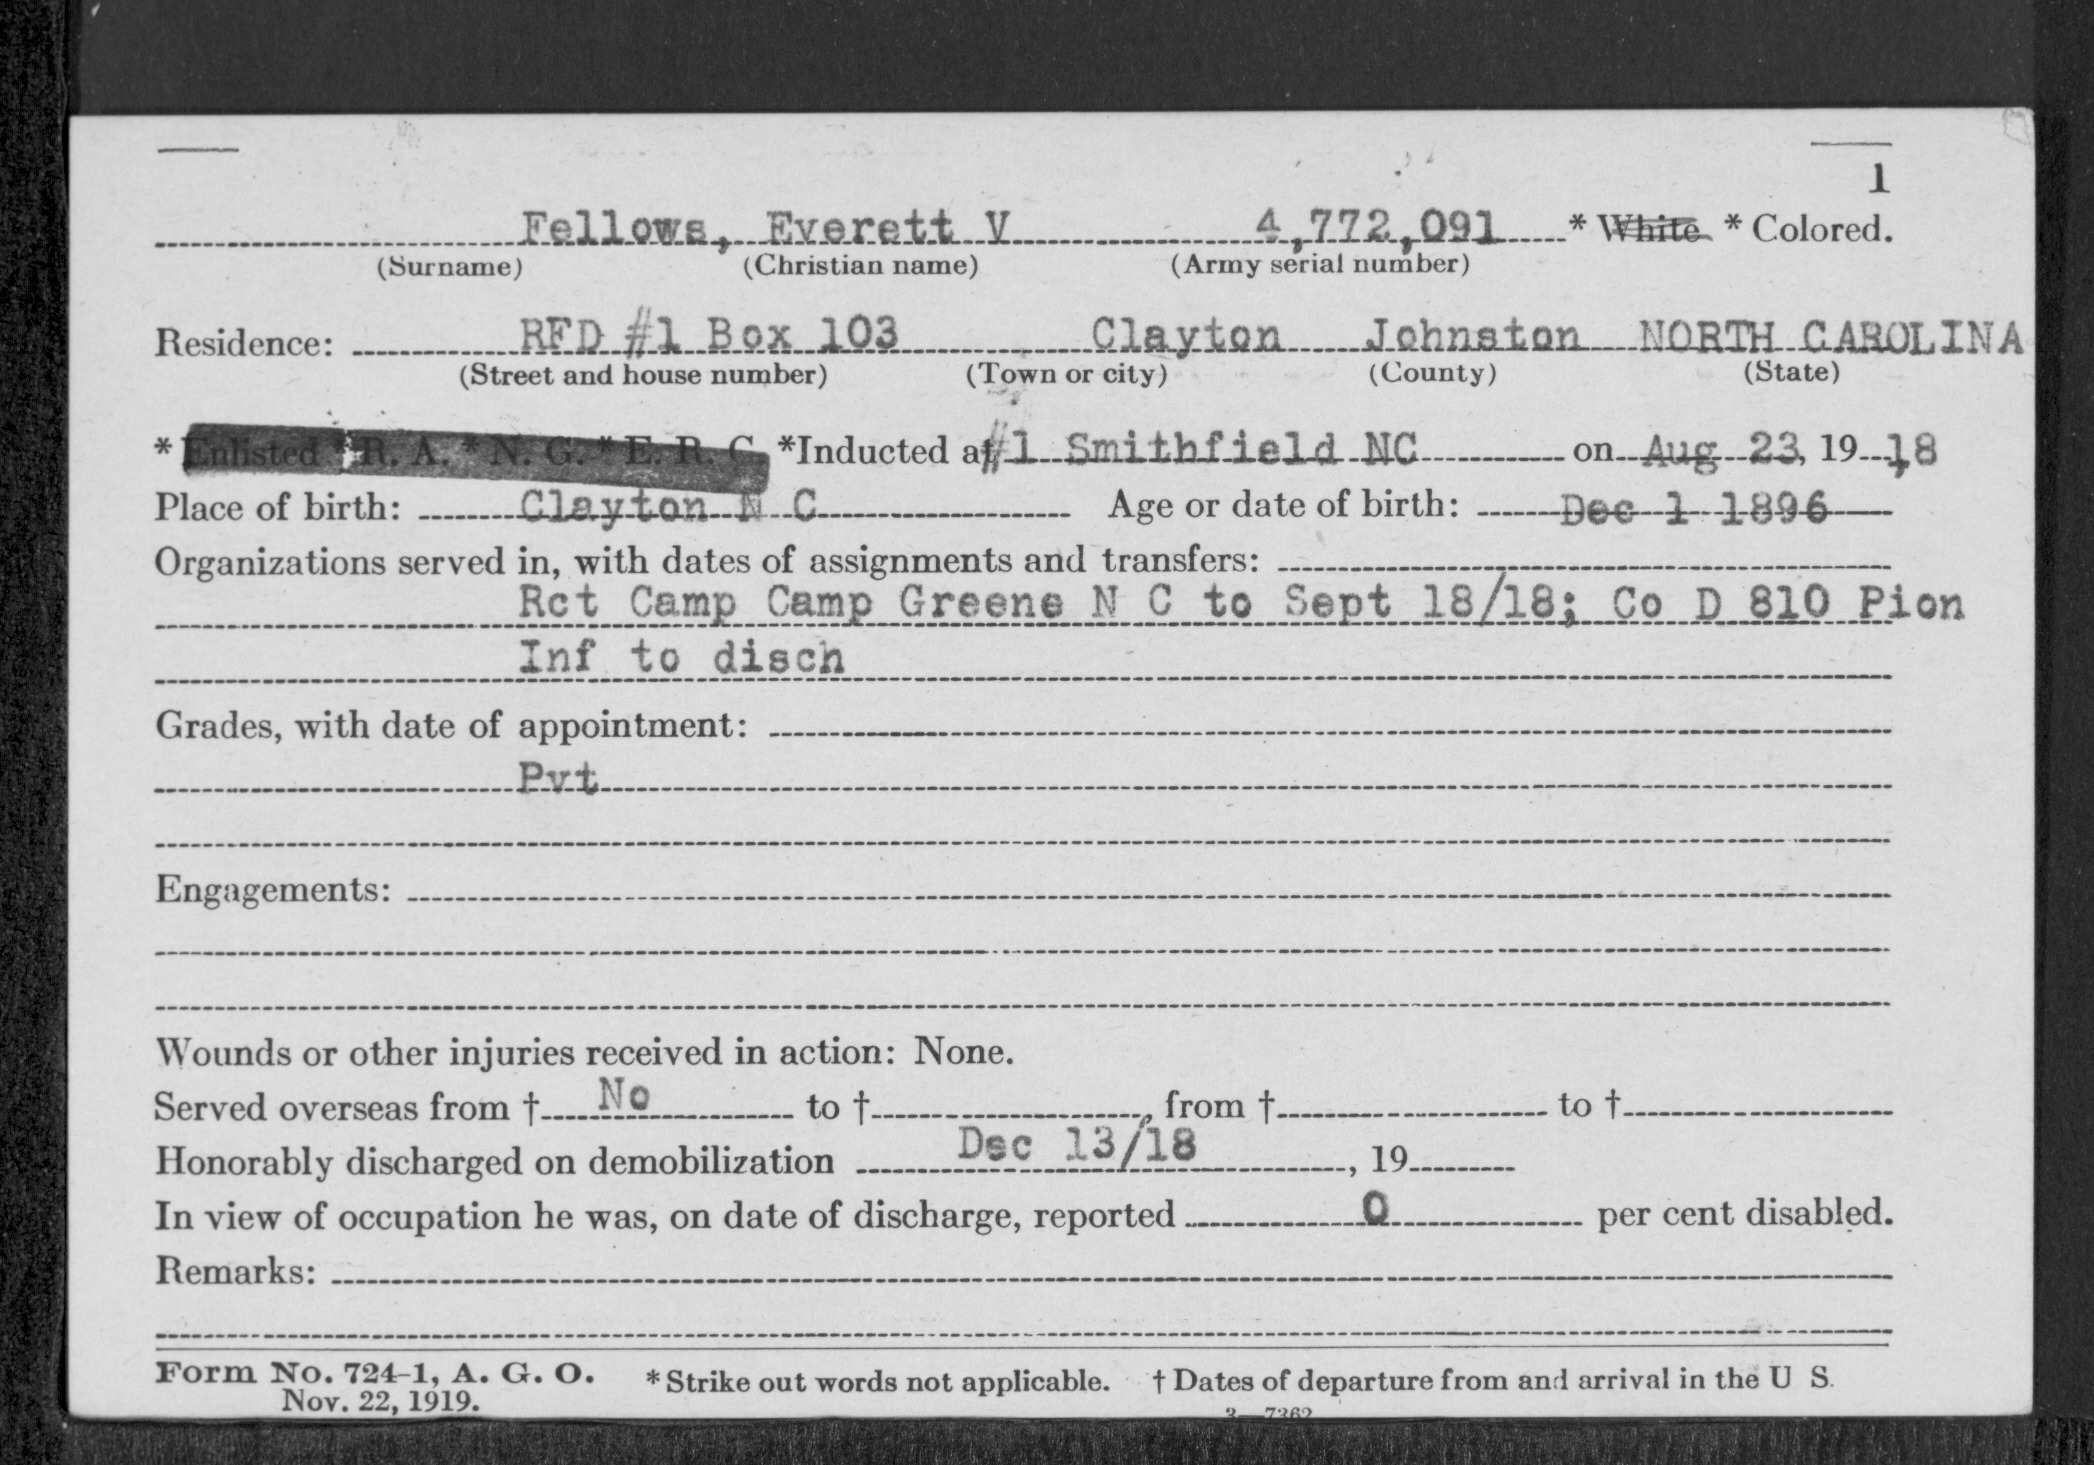 1
Fellows, Everett V 4,772,091 * White * Colored.
(Surname) (Christian name) (Army serial number)
Residence: RFD #1 Box 103 Clayton Johnston NORTH CAROLINA
(Street and house number) (Town or city) (County) (State)
* Enlisted * R. A. * N. G. * E. R. C. *Inducted at #1 Smithfield NC on Aug 23, 19 18
Place of birth: Clayton N C Age or date of birth: Dec 1 1896
Organizations served in, with dates of assignments and transfers:
Rct Camp Camp Greene N C to Sept 18/18; Co D 810 Pion
Inf to disch
Grades, with date of appointment:
Pvt
Engagements:
Wounds or other injuries received in action: None.
Served overseas from † No to †, from † to †
Honorably discharged on demobilization Dec 13/18, 19
In view of occupation he was, on date of discharge, reported 0 per cent disabled.
Remarks:
Form No. 724-1, A. G. O. * Strike out words not applicable. † Dates of departure from and arrival in the U S.
Nov. 22, 1919.
3—7362